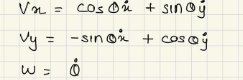 Vx = cosθẋ + sinθẏ
Vy = -sinθẋ + cosθẏ
w = θ̇